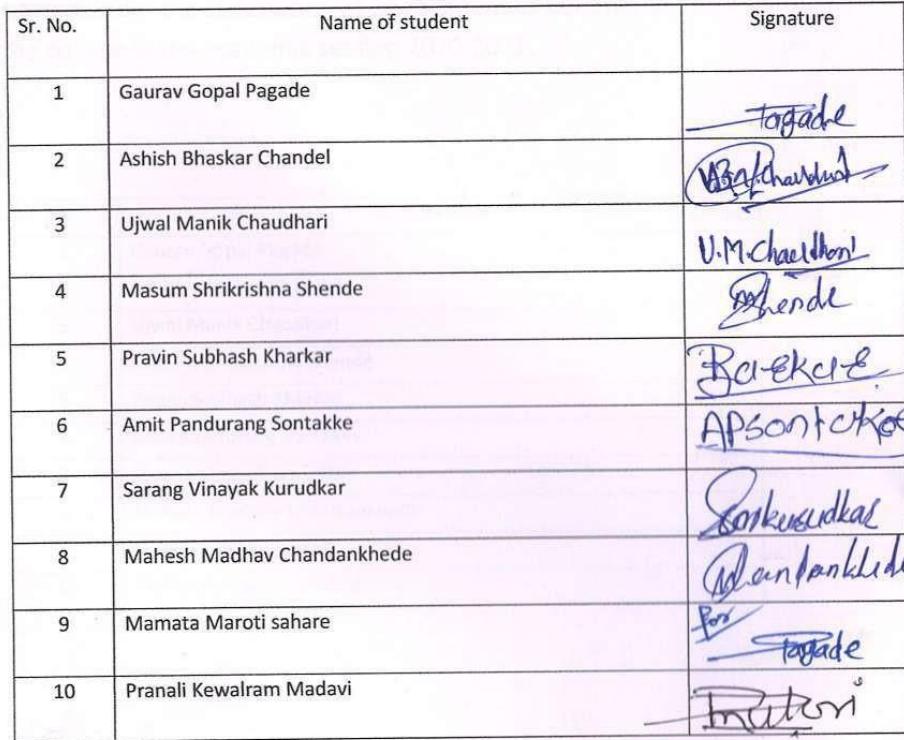 Sr. No. Name of student Signature
1 Gaurav Gopal Pagade Pagade
2 Ashish Bhaskar Chandel
3 Ujwal Manik Chaudhari U.M.Chaudhari
4 Masum Shrikrishna Shende Shende
5 Pravin Subhash Kharkar
6 Amit Pandurang Sontakke APSontakke
7 Sarang Vinayak Kurudkar
8 Mahesh Madhav Chandankhede
9 Mamata Maroti sahare For Pagade
10 Pranali Kewalram Madavi